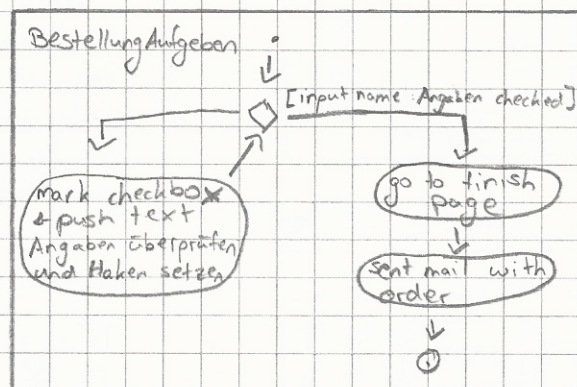 BestellungAufgeben
[input name: Angaben checked]
mark checkbox
& push text
Angaben überprüfen
und Haken setzen
go to finish
page
sent mail with
order